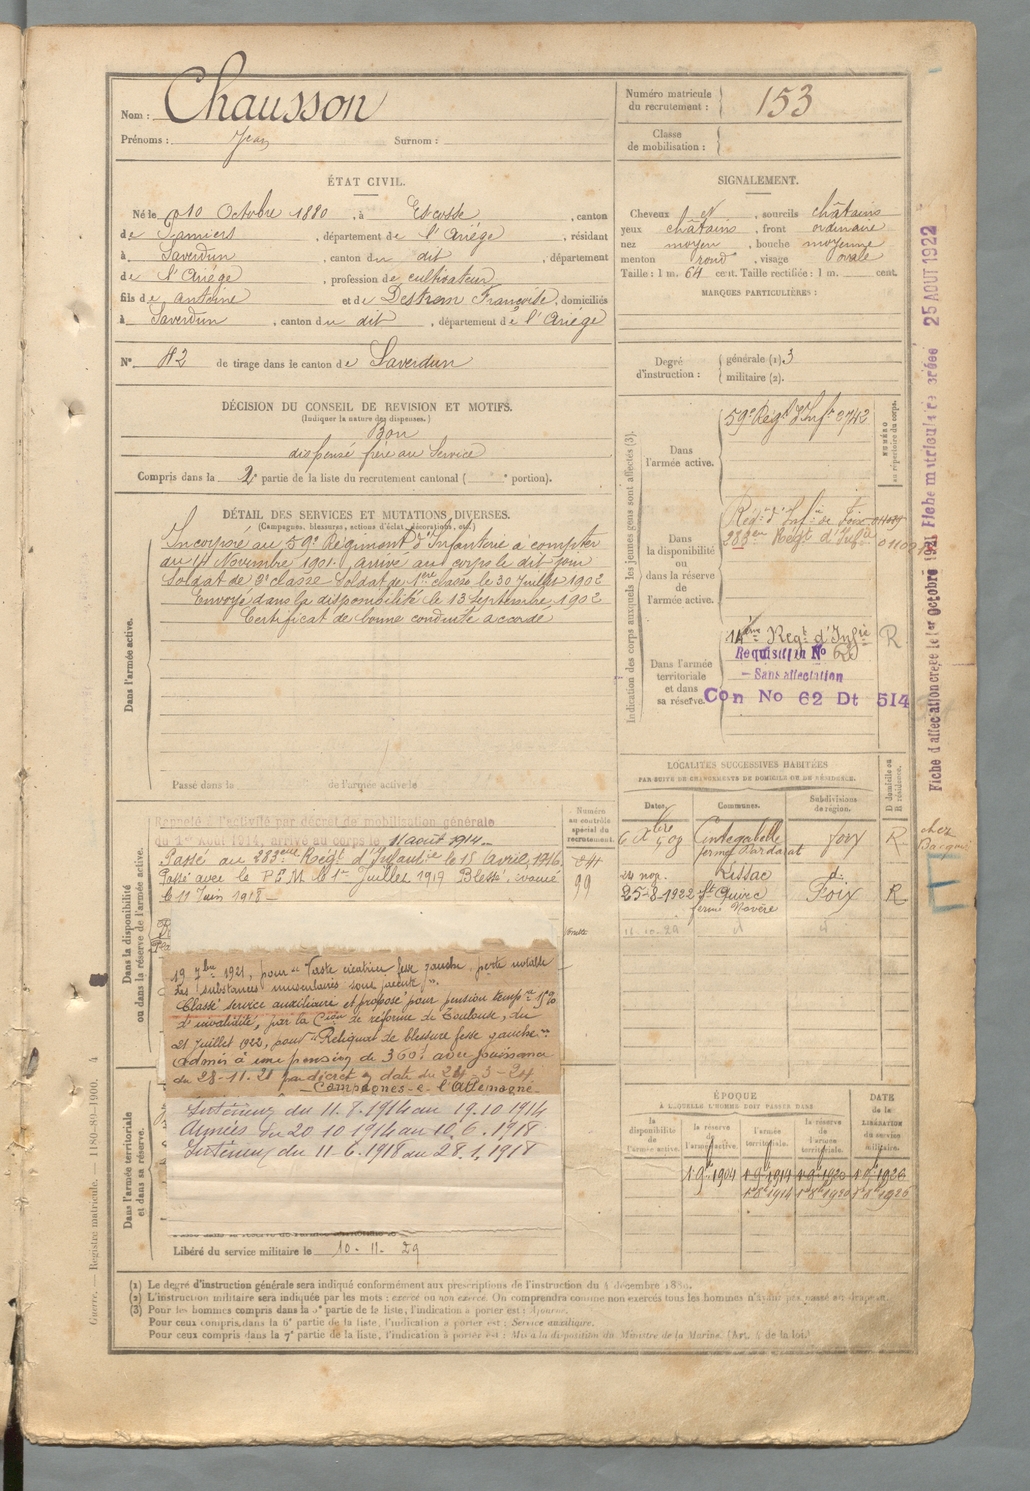 Nom : Chausson
Prénoms : Jean Surnom :
Numéro matricule du recrutement : 153
Classe de mobilisation :
ÉTAT CIVIL.
Né le 10 Octobre 1880, à Escosse, canton
de Pamiers, département de l'Ariège, résidant
à Saverdun, canton du dit, département
de l'Ariège, profession de cultivateur
fils de Antoine et de Destrem Françoise, domiciliés
à Saverdun, canton du dit, département de l'Ariège
N° 82 de tirage dans le canton de Saverdun
SIGNALEMENT.
Cheveux et, sourcils châtains
yeux châtains, front ordinaire
nez moyen, bouche moyenne
menton rond, visage ovale
Taille : 1 m. 64 cent. Taille rectifiée : 1 m. cent.
MARQUES PARTICULIÈRES :
Degré d'instruction : générale (1). 3
militaire (2).
DÉCISION DU CONSEIL DE REVISION ET MOTIFS.
(Indiquer la nature des dispenses.)
Bon
dispensé frère au service
Compris dans la 2e partie de la liste du recrutement cantonal ( e portion).
DÉTAIL DES SERVICES ET MUTATIONS DIVERSES.
(Campagnes, blessures, actions d'éclat, décorations, etc.)
Dans l'armée active.
Incorporé au 59e Régiment d'Infanterie à compter
du 14 Novembre 1901. arrivé au corps le dit jour
Soldat de 2e classe. Soldat de 1ere classe le 30 Juillet 1902
Envoyé dans la disponibilité le 13 Septembre 1902
Certificat de bonne conduite accordé
Passé dans la de l'armée active le
Indication des corps auxquels les jeunes gens sont affectés (3).
NUMÉRO au répertoire du corps.
Dans l'armée active.
59e Régt d'Infie 3742
Dans la disponibilité ou dans la réserve de l'armée active.
Régt d'Infie de Foix
283eme Régt d'Infie
Dans l'armée territoriale et dans sa réserve.
14eme Régt d'Infie R
Requisition No
— Sans affectation
Con No 62 Dt 514
Fiche d'affectation créée le 1er Octobre 1921 Fiche matriculaire créée 25 AOUT 1922
LOCALITÉS SUCCESSIVES HABITÉES
PAR SUITE DE CHANGEMENTS DE DOMICILE OU DE RÉSIDENCE.
Dates. Communes. Subdivisions de région. D domicile ou R résidence.
6 Xbre 09 Cintegabelle Foix R
ferme
24 nov. Lissac d°
25-8-1922 St Quirc Foix R
ferme
11-10-29 d d
chez
Dans la disponibilité ou dans la réserve de l'armée active.
Numéro au contrôle spécial du recrutement.
Rappelé à l'activité par décret de mobilisation générale
du 1er Août 1914, arrivé au corps le 11 août 1914.
Passé au 283eme Régt d'Infanterie le 15 Avril 1916.
Passé avec le P.E.M. le 1er Juillet 1917 Blessé, évacué
le 11 Juin 1918 —
19 7bre 1921, pour "Vaste cicatrice fesse gauche, perte notable
des substances musculaires sous jacente".
Classé service auxiliaire et proposé pour pension tempre 15%
d'invalidité, par la Cion de réforme de Toulouse, du
21 Juillet 1922, pour "Reliquat de blessure fesse gauche"
Admis à une pension de 360f avec jouissance
du 28-11-21 par décret en date du 24-3-24
— Campagnes — c. l'Allemagne —
Intérieur du 11.8.1914 au 19.10.1914
Armées du 20.10.1914 au 10.6.1918
Intérieur du 11.6.1918 au 28.1.1918
Dans l'armée territoriale et dans sa réserve.
Libéré du service militaire le 10-11-29
ÉPOQUE
À LAQUELLE L'HOMME DOIT PASSER DANS
DATE de la LIBÉRATION du service militaire.
la disponibilité de l'armée active. la réserve de l'armée active. l'armée territoriale. la réserve de l'armée territoriale.
1er 9bre 1904 1er 9bre 1914 1er 9bre 1920 1er 9bre 1926
1er 8bre 1914 1er 8bre 1920 1er 8bre 1926
(1) Le degré d'instruction générale sera indiqué conformément aux prescriptions de l'instruction du 4 décembre 1889.
(2) L'instruction militaire sera indiquée par les mots : exercé ou non exercé. On comprendra comme non exercés tous les hommes n'ayant pas passé au drapeau.
(3) Pour les hommes compris dans la 5e partie de la liste, l'indication à porter est : Ajourné.
Pour ceux compris dans la 6e partie de la liste, l'indication à porter est : Service auxiliaire.
Pour ceux compris dans la 7e partie de la liste, l'indication à porter est : Mis à la disposition du Ministre de la Marine. (Art. 4 de la loi.)
Guerre. — Registre matricule. — 1180-89-1900. 4